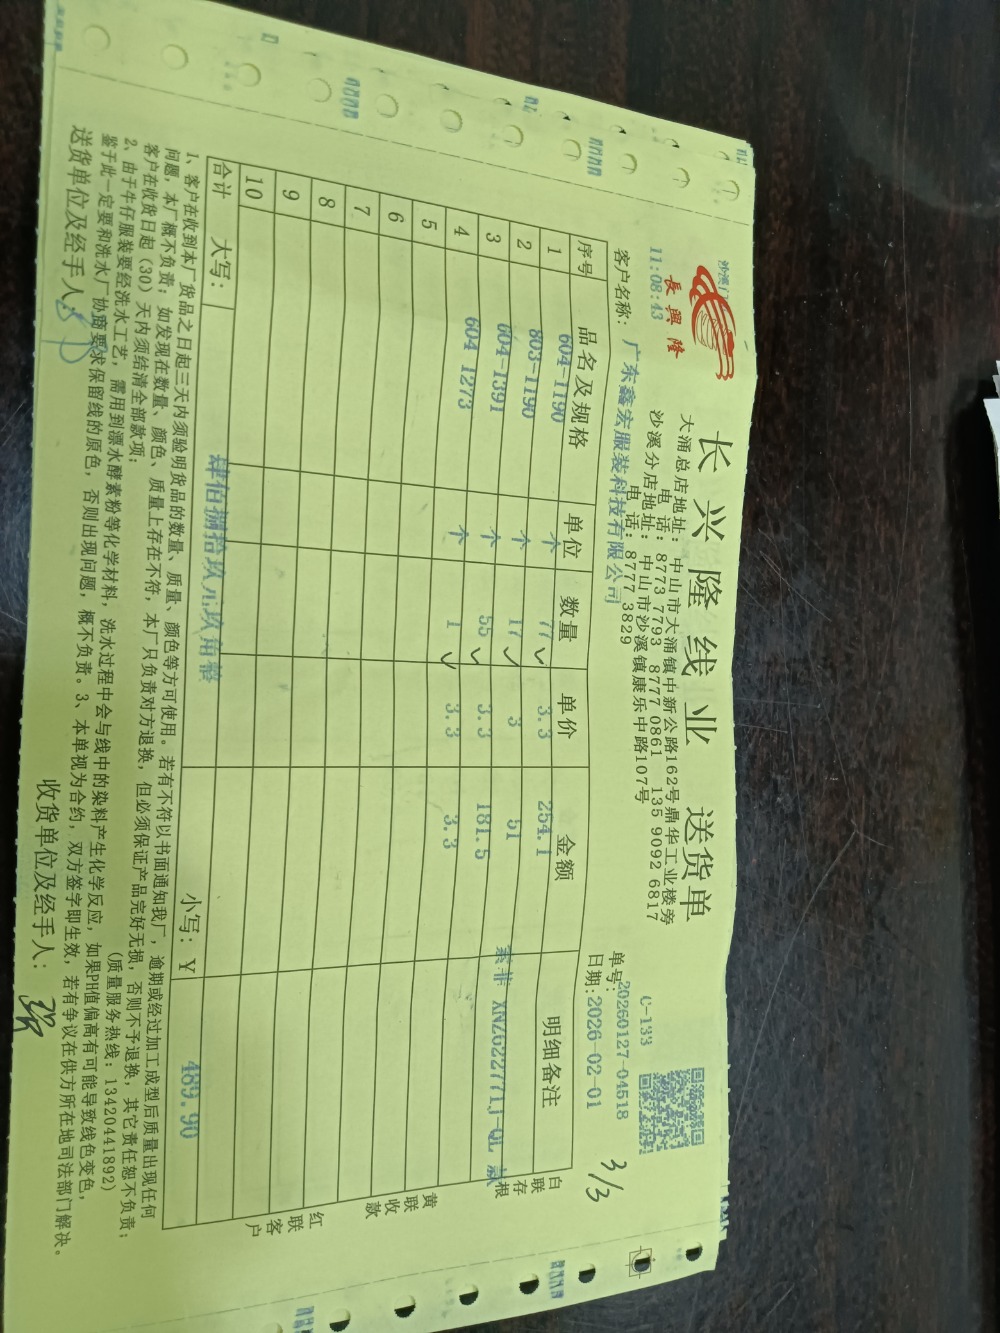 長興隆
长兴隆线业 送货单
大涌总店地址：中山市大涌镇中新公路162号鼎华工业楼旁
电 话：8773 7793 8777 0861 135 9092 6817
沙溪分店地址：中山市沙溪镇康乐中路107号
电 话：8777 3829
C-133
11:08:43
单号：20260127-04518
客户名称：广东鑫宏服装科技有限公司
日期：2026-02-01
3/3
序号 品名及规格 单位 数量 单价 金额 明细备注
1 604-1190 个 77 3.3 254.1
2 803-1190 个 17 3 51
3 604-1391 个 55 3.3 181.5 XNZ622771J-QL 款
4 604 1273 个 1 3.3 3.3
5
6
7
8
9
10
合计 大写：肆佰捌拾玖元玖角整 小写：￥ 489.90
白联存根
黄联收款
红联客户
1、客户在收到本厂货品之日起三天内须验明货品的数量、质量、颜色等方可使用。若有不符以书面通知我厂，逾期或经过加工成型后质量出现任何
问题，本厂概不负责；如发现在数量、颜色、质量上存在不符，本厂只负责对方退换，但必须保证产品完好无损，否则不予退换，其它责任恕不负责；
客户在收货日起（30）天内须结清全部款项；
（质量服务热线：13420441892）
2、由于牛仔服装要经洗水工艺，需用到漂水酵素粉等化学材料，洗水过程中会与线中的染料产生化学反应，如果PH值偏高有可能导致线色变色，
鉴于此一定要和洗水厂协商要求保留线的原色，否则出现问题，概不负责。3、本单视为合约，双方签字即生效，若有争议在供方所在地司法部门解决。
送货单位及经手人：
收货单位及经手人：